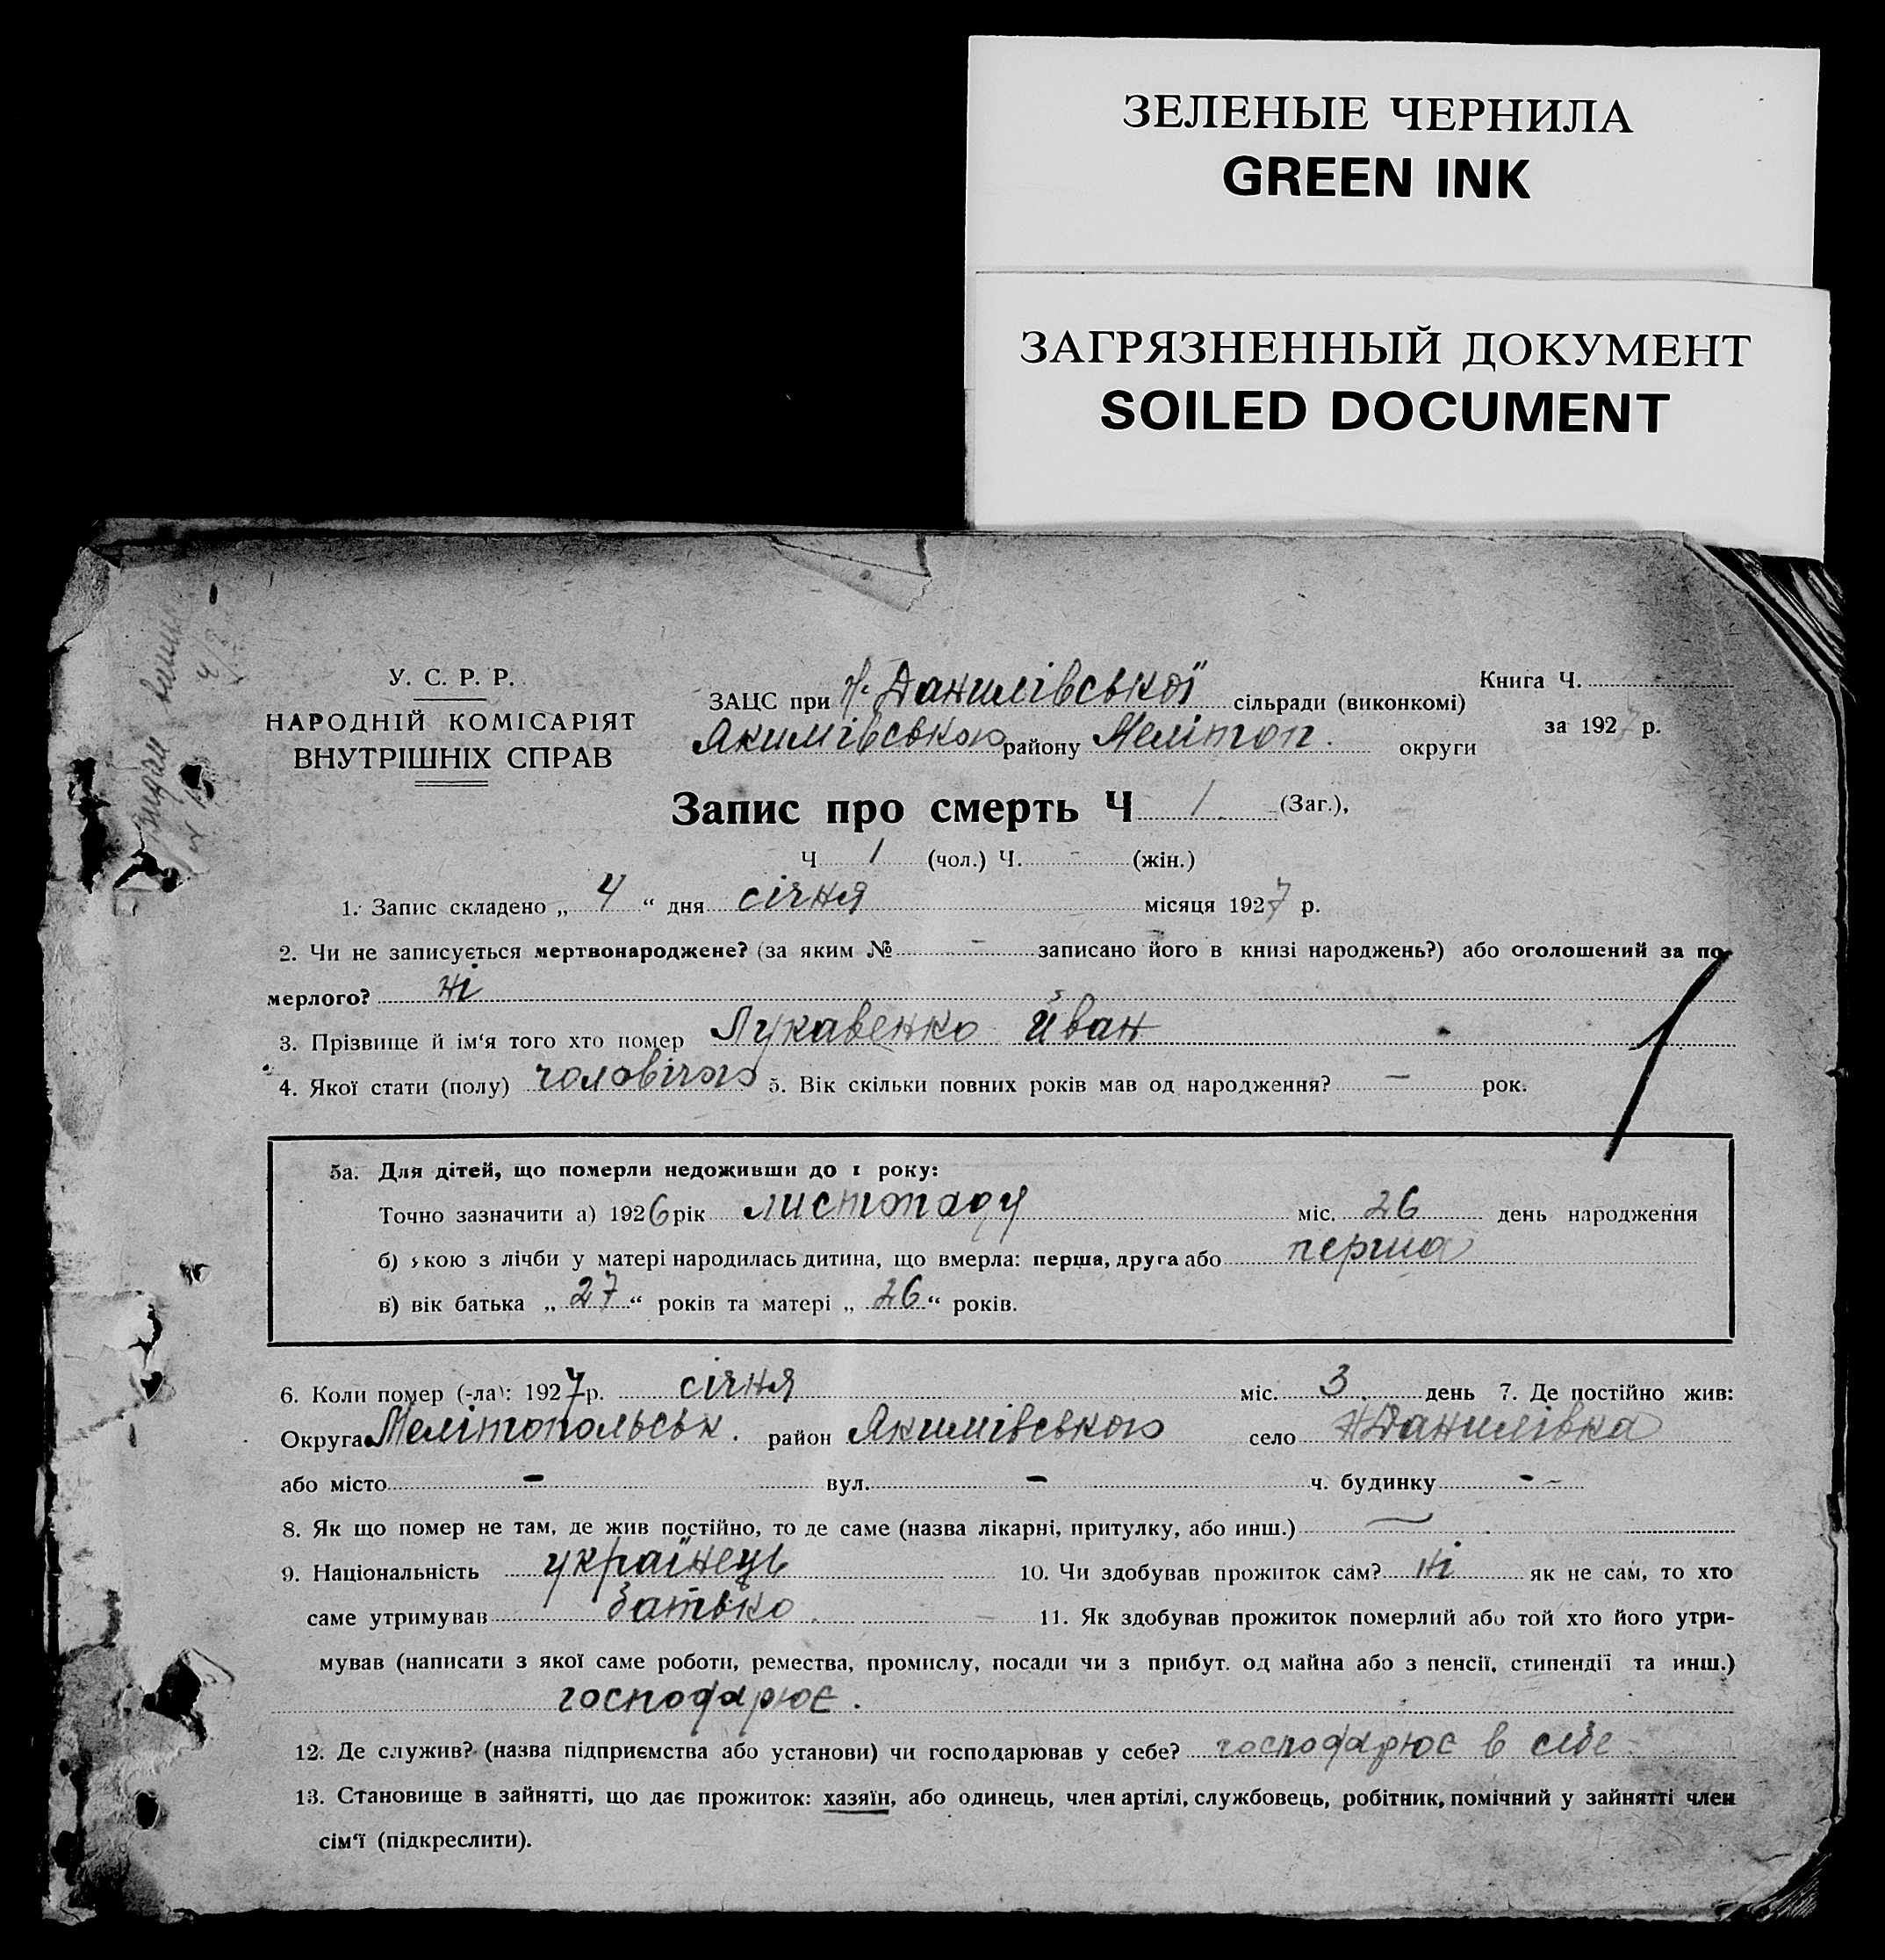 ЗЕЛЕНЫЕ ЧЕРНИЛА
GREEN INK
ЗАГРЯЗНЕННЫЙ ДОКУМЕНТ
SOILED DOCUMENT
У. С. Р. Р.
НАРОДНІЙ КОМІСАРІЯТ
ВНУТРІШНІХ СПРАВ
ЗАЦС при Н. Данилівської сільради (виконкомі)
Якимівського району Мелітоп. округи
Книга Ч.
за 1927 р.
Запис про смерть Ч 1 (Заг.),
Ч 1 (чол.) Ч. - (жін.)
1. Запис складено „ 4 “ дня січня місяця 1927 р.
2. Чи не записується мертвонароджене? (за яким № - записано його в книзі народжень?) або оголошений за по-
мерлого? ні
3. Прізвище й ім‘я того хто помер Лукавенко Йван
4. Якої стати (полу) чоловічого 5. Вік скільки повних років мав од народження? — рок.
5а. Для дітей, що померли недоживши до 1 року:
Точно зазначити а) 1926 рік листопаду міс. 26 день народження
б) якою з лічби у матері народилась дитина, що вмерла: перша, друга або перша
в) вік батька „ 27 “ років та матері „ 26 “ років.
6. Коли помер (-ла): 1927 р. січня міс. 3 день 7. Де постійно жив:
Округа Мелітопольськ. район Якимівського село Н Данилівка
або місто - вул. - ч. будинку - -
8. Як що помер не там, де жив постійно, то де саме (назва лікарні, притулку, або инш.) —
9. Національність українець 10. Чи здобував прожиток сам? ні як не сам, то хто
саме утримував батько 11. Як здобував прожиток померлий або той хто його утри-
мував (написати з якої саме роботи, ремества, промислу, посади чи з прибут. од майна або з пенсії, стипендії та инш.)
господарює.
12. Де служив? (назва підприємства або установи) чи господарював у себе? господарює в себе
13. Становище в зайнятті, що дає прожиток: хазяїн, або одинець, член артілі, службовець, робітник, помічний у зайнятті член
сім‘ї (підкреслити).